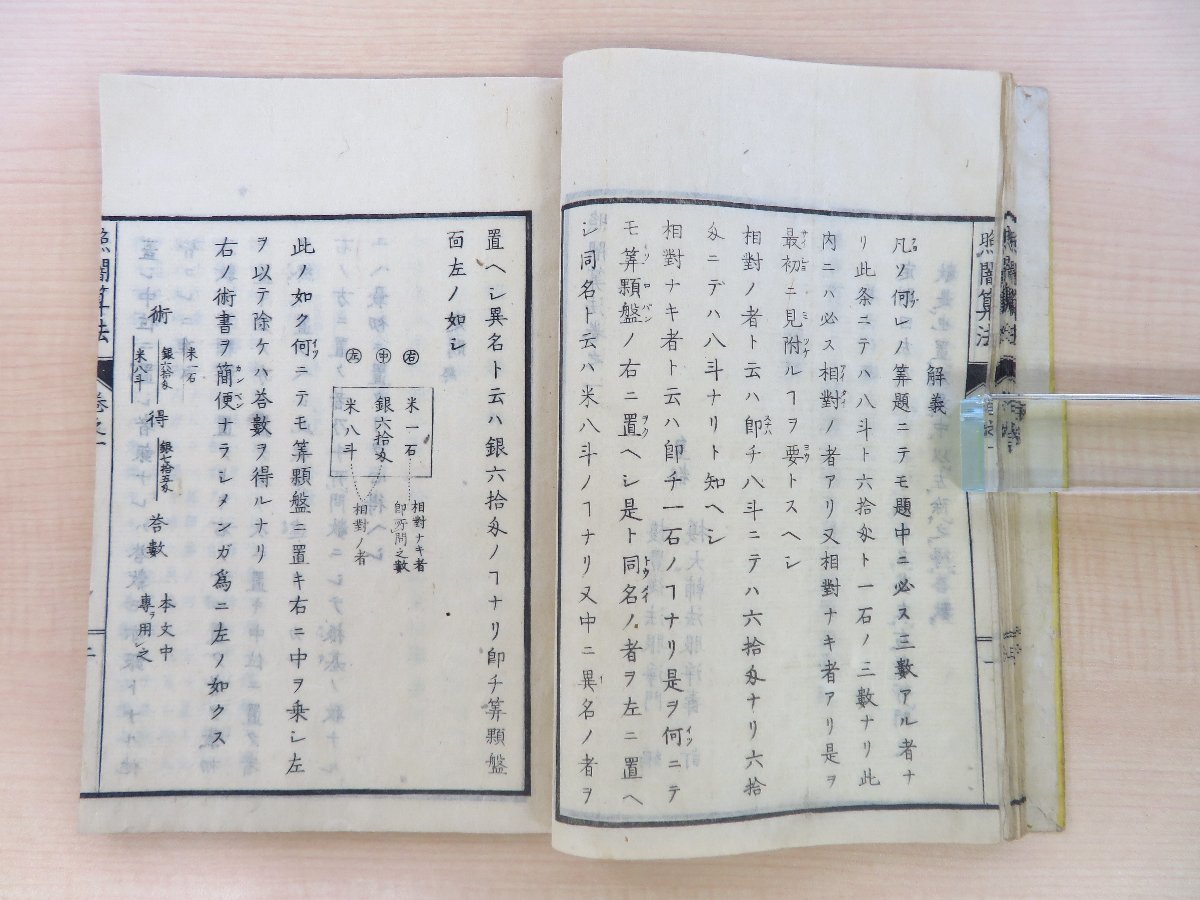 照闇算法
一
解義
凡ソ何レノ筭題ニテモ題中ニ必ス三數アル者ナ
リ此条ニテハ八斗ト六拾匁ト一石ノ三數ナリ此
内ニハ必ス相對ノ者アリ又相對ナキ者アリ是ヲ
最初ニ見附ルヿヲ要トスヘシ
相對ノ者ト云ハ即チ八斗ニテハ六拾匁ナリ六拾
匁ニテハ八斗ナリト知ヘシ
相對ナキ者ト云ハ即チ一石ノヿナリ是ヲ何ニテ
モ筭顆盤ノ右ニ置ヘシ是ト同名ノ者ヲ左ニ置ヘ
シ同名ト云ハ米八斗ノヿナリ又中ニ異名ノ者ヲ
置ヘシ異名ト云ハ銀六拾匁ノヿナリ即チ筭顆盤
面左ノ如シ
右 米一石 相對ナキ者即所問之數
中 銀六拾匁
左 米八斗 相對ノ者
此ノ如ク何ニテモ筭顆盤ニ置キ右ニ中ヲ乗シ左
ヲ以テ除ケハ答數ヲ得ルナリ
右ノ術書ヲ簡便ナラシメンガ爲ニ左ノ如クス
術 米一石 銀六拾匁 米八斗 得 銀七拾五匁 答數 本文中專ヲ用シ之
照闇算法
卷之一
二